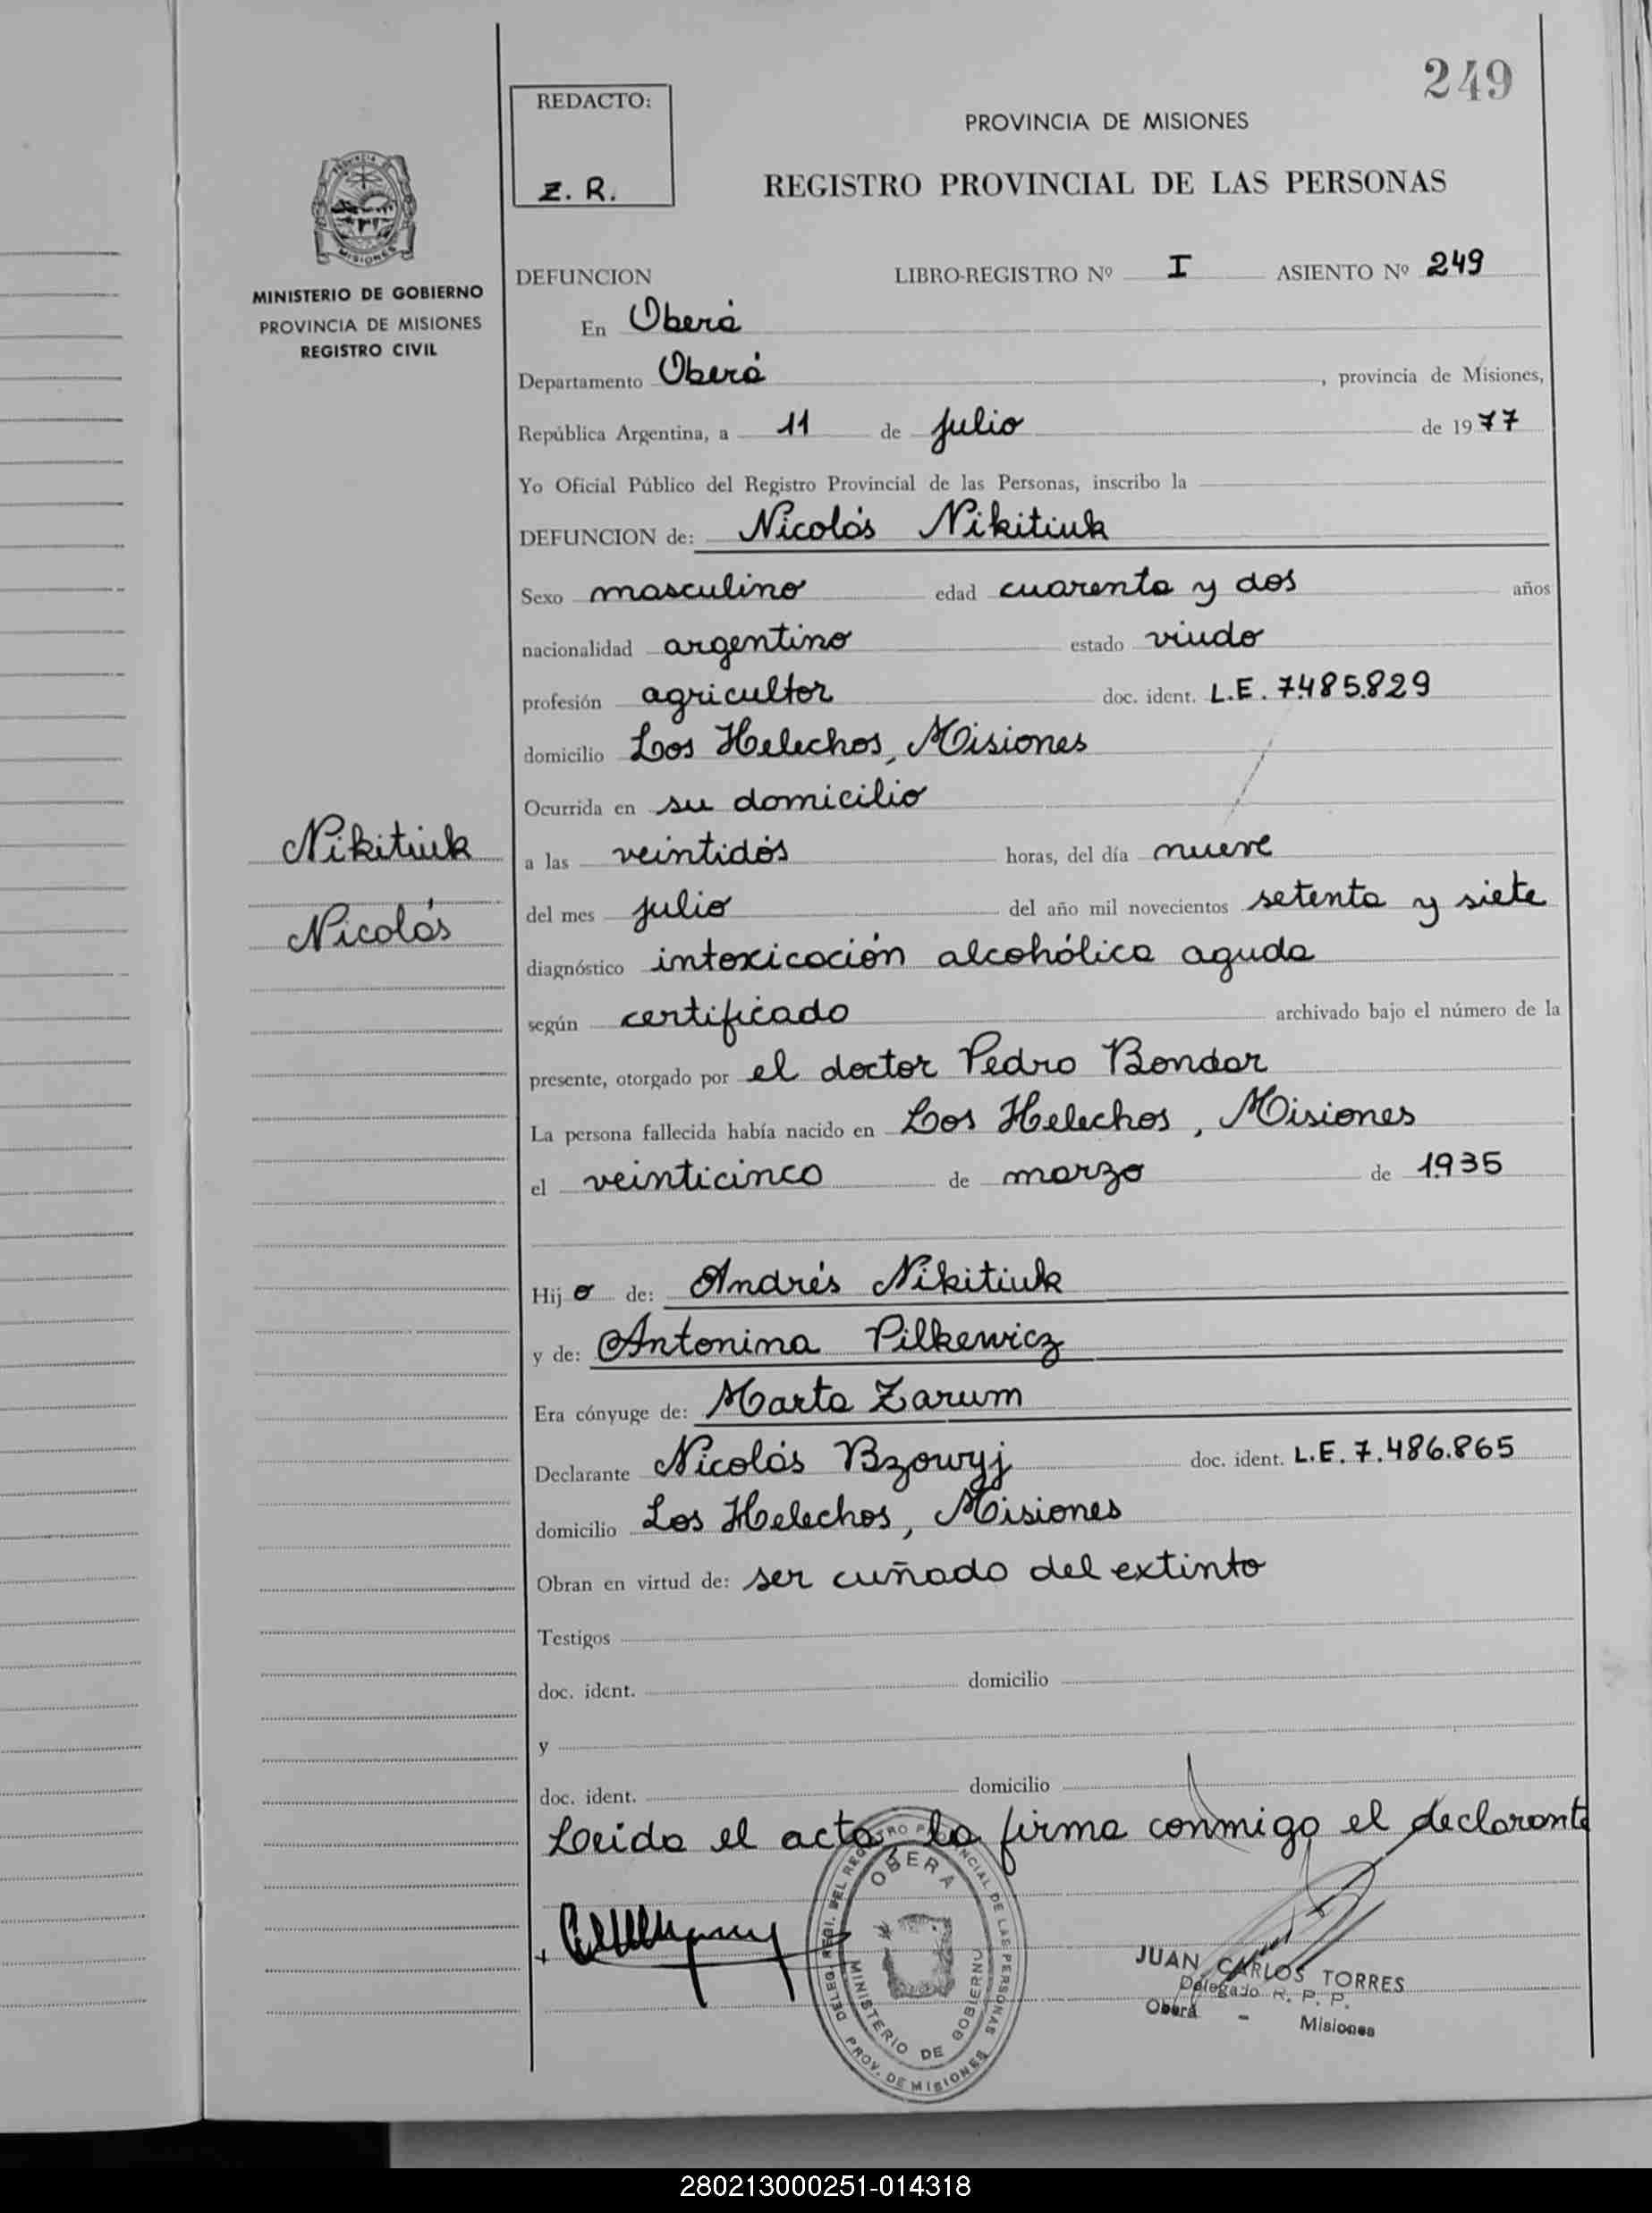 249
REDACTO:
Z. R.
PROVINCIA DE MISIONES
REGISTRO PROVINCIAL DE LAS PERSONAS
MISIONES
MINISTERIO DE GOBIERNO
PROVINCIA DE MISIONES
REGISTRO CIVIL
DEFUNCION LIBRO-REGISTRO Nº I ASIENTO Nº 249
En Oberá
Departamento Oberá, provincia de Misiones,
República Argentina, a 11 de julio de 1977
Yo Oficial Público del Registro Provincial de las Personas, inscribo la
DEFUNCION de: Nicolás Nikitiuk
Sexo masculino edad cuarenta y dos años
nacionalidad argentino estado viudo
profesión agricultor doc. ident. L.E. 7.485.829
domicilio Los Helechos, Misiones
Ocurrida en su domicilio
Nikitiuk
Nicolás
a las veintidós horas, del día nueve
del mes julio del año mil novecientos setenta y siete
diagnóstico intoxicación alcohólica aguda
según certificado archivado bajo el número de la
presente, otorgado por el doctor Pedro Bondar
La persona fallecida había nacido en Los Helechos, Misiones
el veinticinco de marzo de 1935
Hijo de: Andrés Nikitiuk
y de: Antonina Pilkewicz
Era cónyuge de: Marta Zarum
Declarante Nicolás Bzowyj doc. ident. L.E. 7.486.865
domicilio Los Helechos, Misiones
Obran en virtud de: ser cuñado del extinto
Testigos
doc. ident. domicilio
y
doc. ident. domicilio
Leida el acta, la firma conmigo el declarante
OBERA
MINISTERIO DE GOBIERNO
PROV. DE MISIONES
JUAN CARLOS TORRES
Delegado R. P. P.
Oberá - Misiones
280213000251-014318